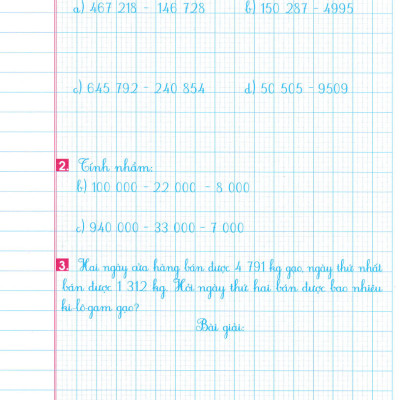 a) 467 218 - 146 728 b) 150 287 - 4995
c) 645 792 - 240 854 d) 50 505 - 9509
2. Tính nhẩm:
b) 100 000 - 22 000 - 8 000
c) 940 000 - 33 000 - 7 000
3. Hai ngày cửa hàng bán được 4 791 kg gạo, ngày thứ nhất
bán được 1 312 kg. Hỏi ngày thứ hai bán được bao nhiêu
ki-lô-gam gạo?
Bài giải: